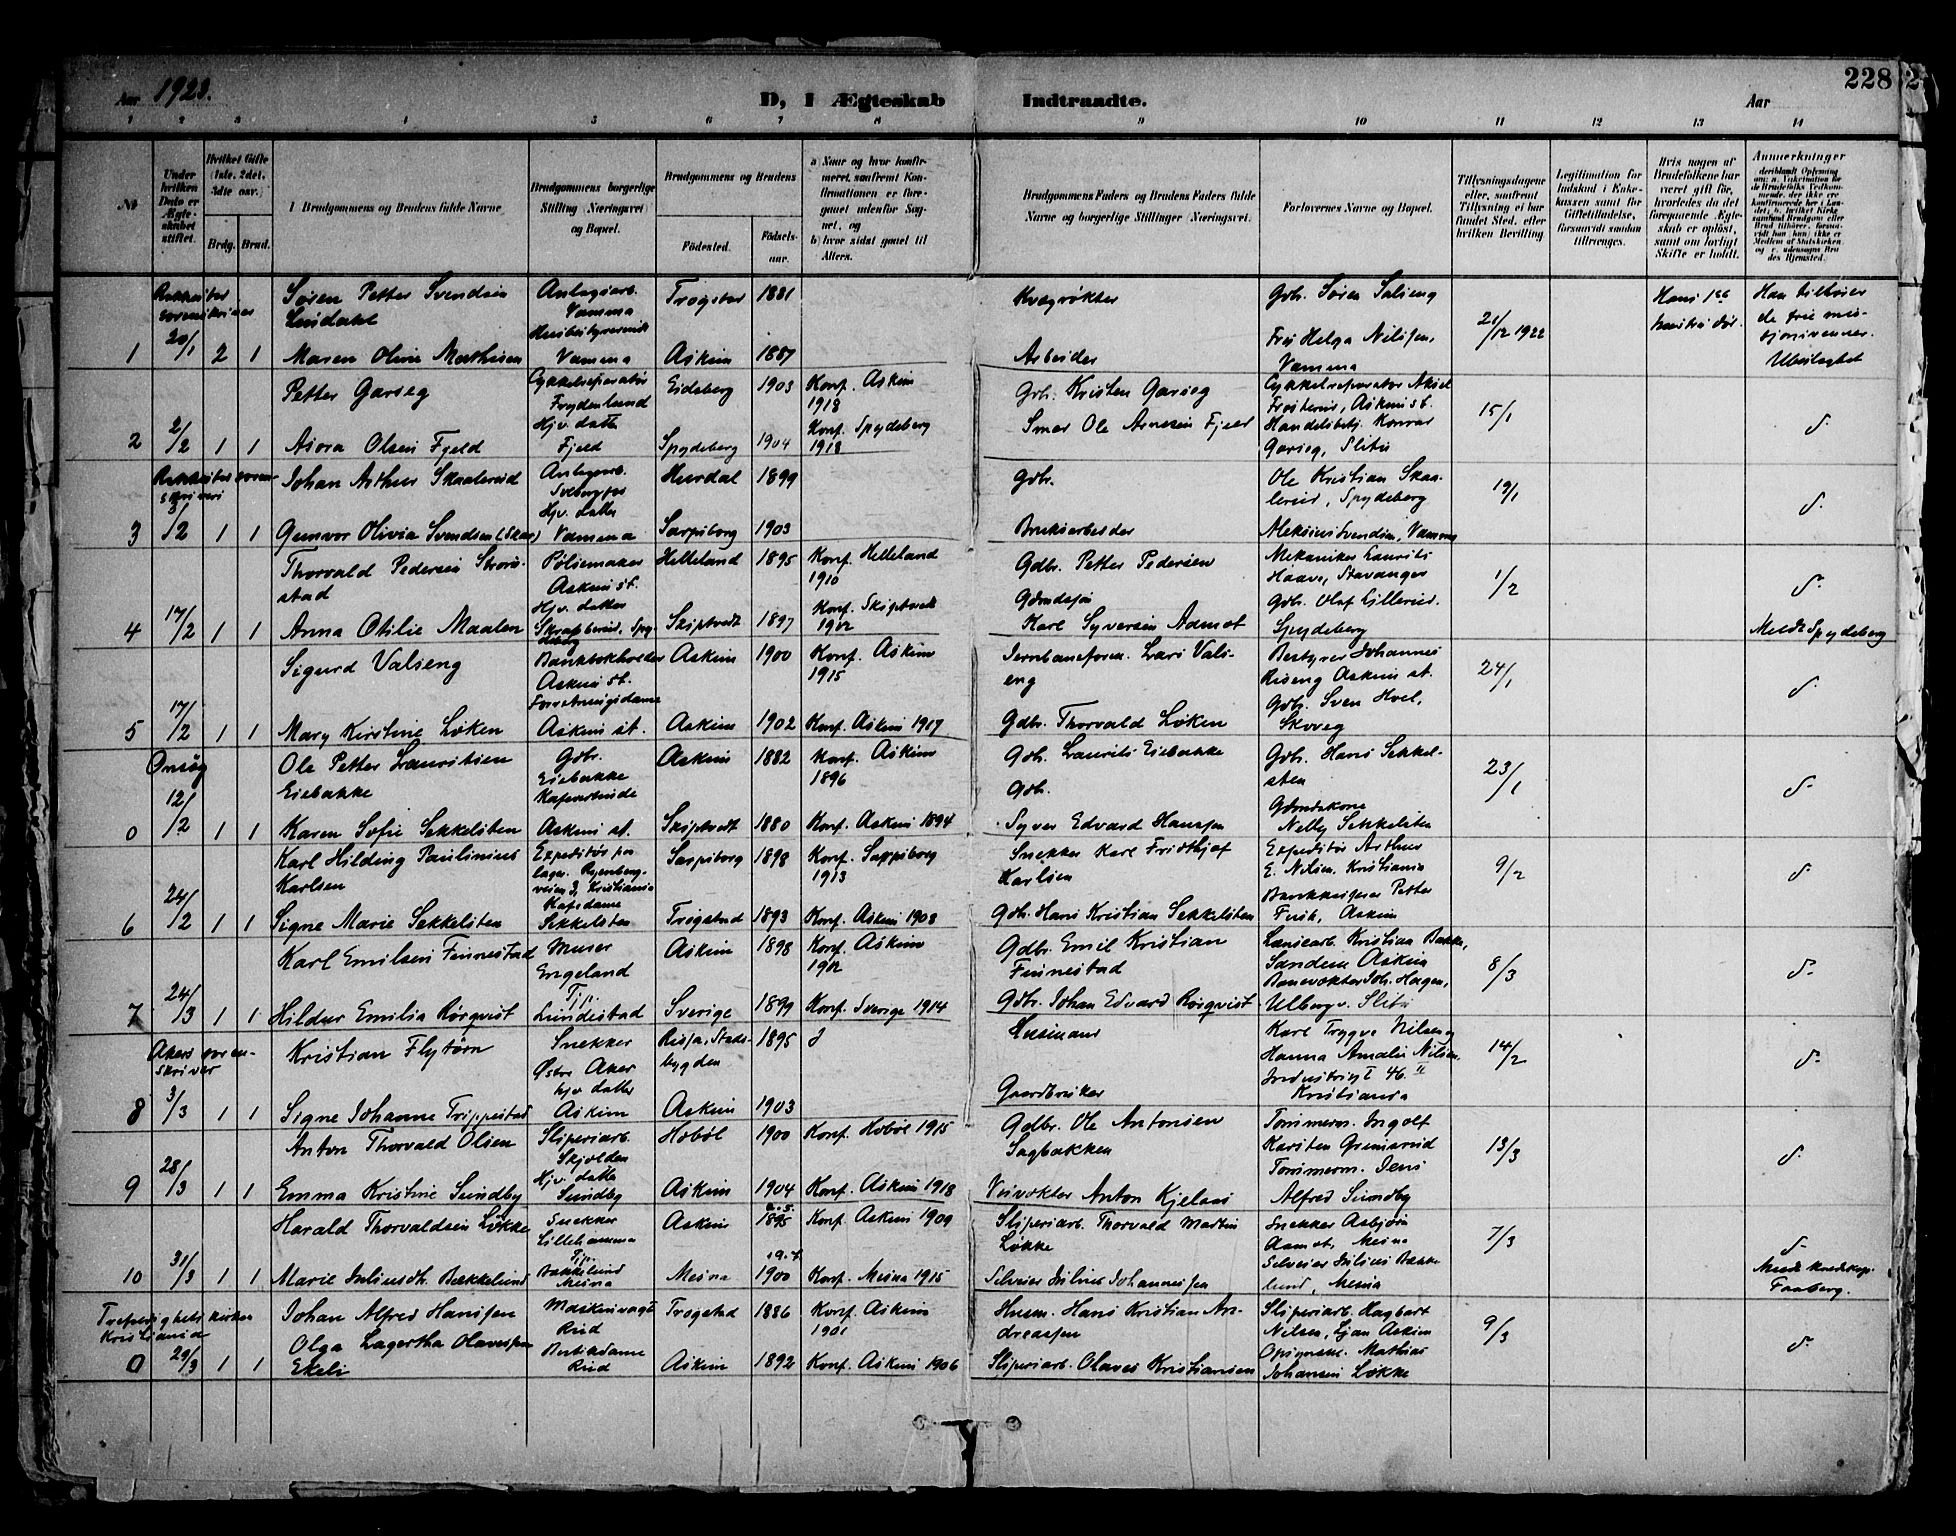 Aar 1923.
D, I Ægteskab Indtraadte.
Aar
228
1 2 3 4 5 6 7 8 9 10 11 12 13 14
No
Under hvilken Dato er Ægteskabet stiftet.
Hvilket Gifte (1ste, 2det, 3dte osv.)
Brdg. Brud.
I Brudgommens og Brudens fulde Navne
Brudgommens borgerlige Stilling (Næringsvei) og Bopæl.
Brudgommens og Brudens
Fødested. Fødsels-aar.
a) Naar og hvor konfirmeret, samt om Konfirmationen er foregaaet udenfor Sognet, og
b) hvor sidst gaaet til Alters.
Brudgommens Faders og Brudens Faders fulde Navne og borgerlige Stillinger (Næringsvei).
Forlovernes Navne og Bopæl.
Tillysningsdagene eller, saafremt Tillysning ei har fundet Sted, efter hvilken Bevilling
Legitimation for Indskud i Enkekassen samt for Giftetilladelse, forsaavidt saadan tiltrænges.
Hvis nogen af Brudefolkene har været gift før, hvorledes da det foregaaende Ægteskab er opløst, samt om lovligt Skifte er holdt.
Anmerkninger
20/1
1 2 1
Søren Petter Svendsen
Lindahl
Maren Olivie Mathisen
Anlægsarb.
Vamma
Vamma
Trøgstad 1881
Askim 1887
Kvægrøkter
Arbeider
Gbr. Søren Solseng
Frk Helga Nilssen,
Vamma
21/12 1922
Hans 1ste
hustru dør.
Han tilhører
de frie mis-
sjonsvenner.
Ubeslægtet
2/2
2 1 1
Petter Garseg
Asora Olsen Fjeld
Cykkelreparatør
Frydenlund
Hjv. datter
Fjeld
Eidsberg 1903 Konf. Askim
1918
Spydeberg 1904 Konf. Spydeberg
1918
Gbr. Kristen Garseg
Smed Ole Arnesen Fjeld
Cykkelreparatør Aksel
Frosterud, Askim st.
Handelsbetj. Konrad
Garseg, Slitu
15/1
3 1 1
Johan Arthur Skaalerud
Gunvor Olivia Svendsen (Skar)
Anlægsarb.
Hjv. datter
Vamma
Hurdal 1899
Sarpsborg 1903
Gdbr.
Bruksarbeider
Ole Kristian Skaa-
lerud, Spydeberg
Aleksius Svendsen, Vamma
19/1
17/2
4 1 1
Thorvald Pedersen Strøm-
stad
Anna Otilie Maalen
Pølsemaker
Askim st.
Hjv. datter
Helleland 1895 Konf. Helleland
1910
Skiptvedt 1897 Konf. Skiptvedt
1912
Gdbr. Petter Pedersen
Karl Syversen Aamot
Mekaniker Laurits
Haave, Stavanger
Gdb. Olaf Lillerud.
Spydeberg
1/2
Meldt Spydeberg
17/2
5 1 1
Sigurd Valseng
Mary Kirstine Løken
Bankbokholder
Askim st.
Forretningsdame
Askim st.
Askim 1900 Konf. Askim
1915
Askim 1902 Konf. Askim 1917
Jernbaneform. Lars Vals-
eng
Gdbr. Thorvald Løken
Bestyrer Johannes
Riseng Askim st.
Gdb. Sven Hoel,
Skoveg
24/1
Onsøy
12/2
0 1 1
Ole Petter Lauritsen
Eiebakke
Karen Sofie Sekkelsten
Gdb.
Eiebakke
Askim st.
Askim 1882 Konf. Askim
1896
Skiptvedt 1880 Konf. Askim 1894
Gdb. Laurits Eiebakke
Gdb.
Syver Edvard Hanssen
Gdb. Hans Sekkel-
sten
Gdmdskone
Nelly Sekkelsten
23/1
24/2
6 1 1
Karl Hilding Paulinius
Karlsen
Signe Marie Sekkelsten
Expeditør paa
lager. Ryenberg-
veien 3, Kristiania
Kafedame
Sekkelsten
Sarpsborg 1898 Konf. Sarpsborg
1913
Trøgstad 1893 Konf. Askim 1908
Snekker Karl Fridthjof
Karlsen
Gdb. Hans Kristian Sekkelsten
Expeditør Arthur
E. Nilsen, Kristiania
Bankkasserer Petter
Fusk, Askim
9/2
24/3
7 1 1
Karl Emilsen Finnestad
Hildur Emilia Rørqvist
Murer
Engeland
Tj.
Lundestad
Askim 1898 Konf. Askim
1912
Sverige 1899 Konf. Sverige 1914
Gdbr. Emil Kristian
Finnestad
Gdbr. Johan Edvard Rørqvist
Lensearb. Kristian Bakke,
Sandem Askim
Banevokter Joh. Hagen,
Ulberg v. Slitu
8/3
Akers soren-
skriver
3/3
8 1 1
Kristian Flytørn
Signe Johanne Trippestad
Snekker
Østre Aker
Hjv. datter
Askim
Rissa, Stads-
bygden 1895
Askim 1903
Husmand
Gaardbruker
Karl Trygve Nilsen og
Hanna Amalie Nilsen,
Industrigt 46 II
Kristiania
14/2
28/3
9 1 1
Anton Thorvald Olsen
Emma Kristine Sundby
Sliperiarb.
Skjolden
Hjv. datter
Sundby
Hobøl 1900 Konf. Hobøl 1915
Askim 1904 Konf. Askim 1918
Gdbr. Ole Antonsen
Sagbakken
Veivokter Anton Kjelaas
Tømmerm. Ingolf
Karsten Grimsrud
Tømmerm. Jens
Alfred Sundby
13/3
31/3
10 1 1
Harald Thorvaldsen Løkke
Marie Juliusdh. Bækkelund
Snekker
Lillehammer
Tj.
Bækkelund
Mesna
Askim 1895 Konf. Askim 1909
Mesna 1900 Konf. Mesna 1915
Sliperiarb. Thorvald Martin
Løkke
Selveier Julius Johannessen
Snekker Asbjørn
Aamot, Mesna
Selveier Julius Bække-
lund, Mesna
7/3
Faaberg.
Trefoldighets kirken
Kristiania
29/3
0 1 1
Johan Alfred Hanssen
Olga Lagertha Olavessen
Ekeli
Maskinvagt
Rud
Butikdame
Rud
Trøgstad 1886 Konf. Askim
1901
Askim 1892 Konf. Askim 1906
Husm. Hans Kristian An-
dreassen
Sliperiarb. Olaves Kristiansen
Sliperiarb. Hagbart
Nilsen, Ljan Askim
Opsynsm. Mathias
Johansen Løkke
9/3